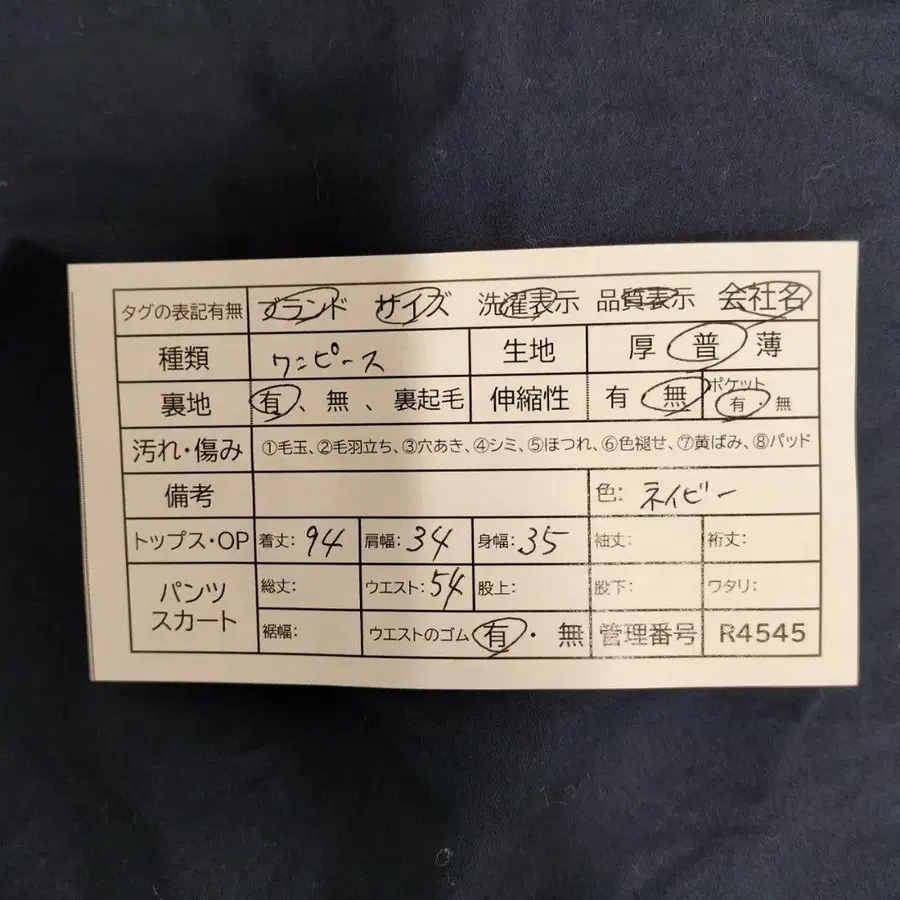 タグの表記有無 ブランド サイズ 洗濯表示 品質表示 会社名
種類 ワンピース 生地 厚 普 薄
裏地 有、無、裏起毛 伸縮性 有 無 ポケット 有・無
汚れ・傷み ①毛玉、②毛羽立ち、③穴あき、④シミ、⑤ほつれ、⑥色褪せ、⑦黄ばみ、⑧パッド
備考 色: ネイビー
トップス・OP 着丈: 94 肩幅: 34 身幅: 35 袖丈: 裄丈:
パンツ スカート 総丈: ウエスト: 54 股上: 股下: ワタリ:
裾幅: ウエストのゴム 有・無 管理番号 R4545